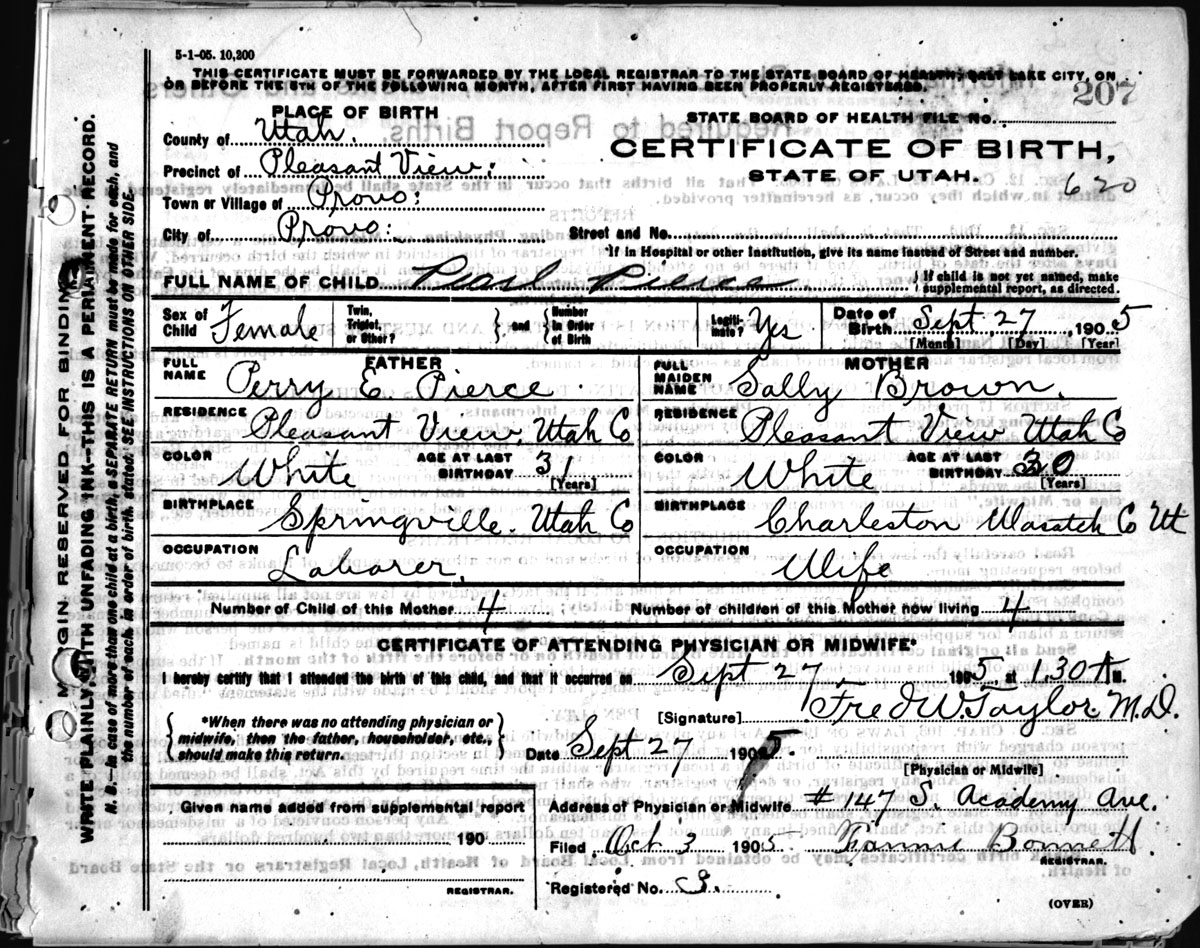 5-1-05. 10,200
THIS CERTIFICATE MUST BE FORWARDED BY THE LOCAL REGISTRAR TO THE STATE BOARD OF HEALTH, SALT LAKE CITY, ON
OR BEFORE THE 5TH OF THE FOLLOWING MONTH, AFTER FIRST HAVING BEEN PROPERLY REGISTERED.
207
PLACE OF BIRTH
STATE BOARD OF HEALTH FILE No.
County of Utah.
CERTIFICATE OF BIRTH,
Precinct of Pleasant View:
STATE OF UTAH.
620
Town or Village of Provo:
City of Provo:
Street and No.
*If in Hospital or other Institution, give its name instead of Street and number.
FULL NAME OF CHILD Pearl Pierce
{ If child is not yet named, make
supplemental report, as directed.
Sex of Child Female
Twin, Triplet, or Other? } and { Number in Order of Birth
Legiti-mate? Yes
Date of Birth Sept 27, 1905
[Month] [Day] [Year]
FATHER
FULL NAME Perry E. Pierce
MOTHER
FULL MAIDEN NAME Sally Brown.
RESIDENCE Pleasant View. Utah Co
RESIDENCE Pleasant View Utah Co
COLOR White AGE AT LAST BIRTHDAY 31 [Years]
COLOR White AGE AT LAST BIRTHDAY 30 [Years]
BIRTHPLACE Springville. Utah Co
BIRTHPLACE Charleston Wasatch Co Ut
OCCUPATION Laborer.
OCCUPATION Wife
Number of Child of this Mother 4
Number of children of this Mother now living 4
CERTIFICATE OF ATTENDING PHYSICIAN OR MIDWIFE*
I hereby certify that I attended the birth of this child, and that it occurred on Sept 27, 1905, at 1.30 A M.
{ *When there was no attending physician or
midwife, then the father, householder, etc.,
should make this return. }
[Signature] Fred W. Taylor M.D.
Date Sept 27 1905.
[Physician or Midwife]
Given name added from supplemental report
190
REGISTRAR.
Address of Physician or Midwife # 147 S. Academy Ave.
Filed Oct 3 1905 Fannie Bonnett
REGISTRAR.
Registered No. 3.
(OVER)
MARGIN RESERVED FOR BINDING
WRITE PLAINLY WITH UNFADING INK—THIS IS A PERMANENT RECORD.
N. B.—In case of more than one child at a birth, a SEPARATE RETURN must be made for each, and
the number of each, in order of birth, stated. SEE INSTRUCTIONS ON OTHER SIDE.